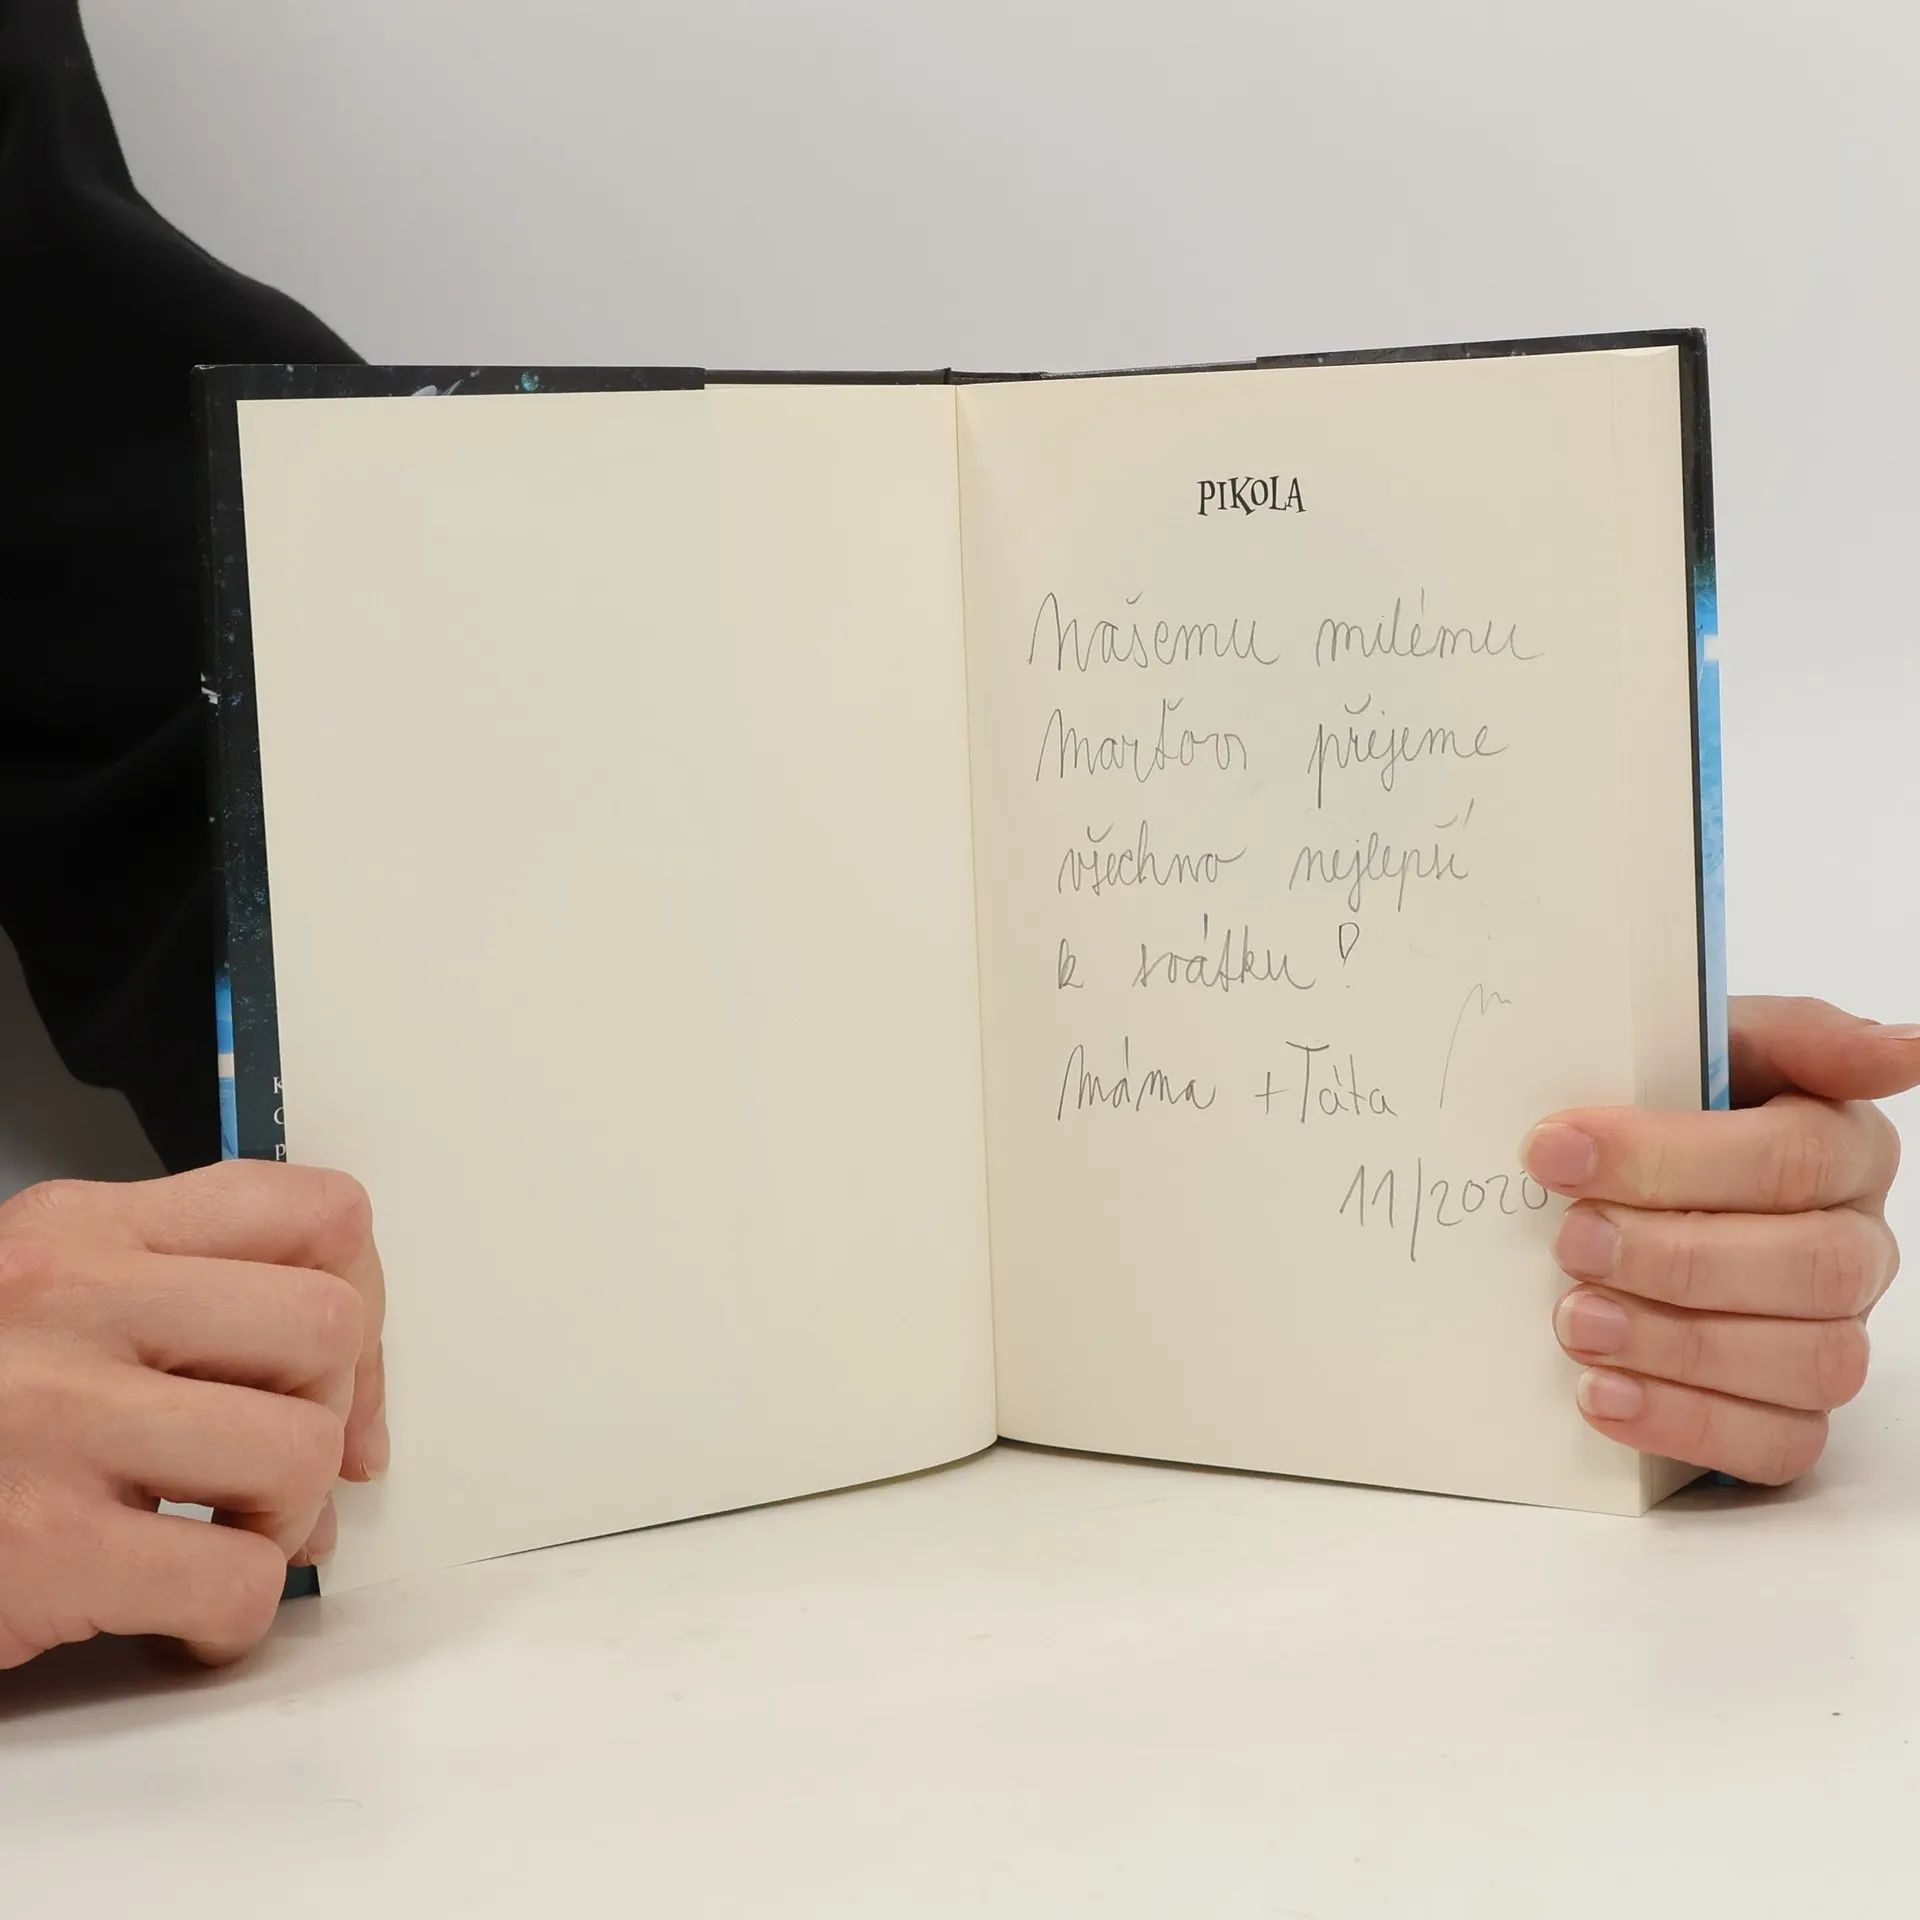 PIKOLA
Našemu milému
Marťovi přejeme
všechno nejlepší
k svátku!
Máma + Táta
11/2020
K
C
p